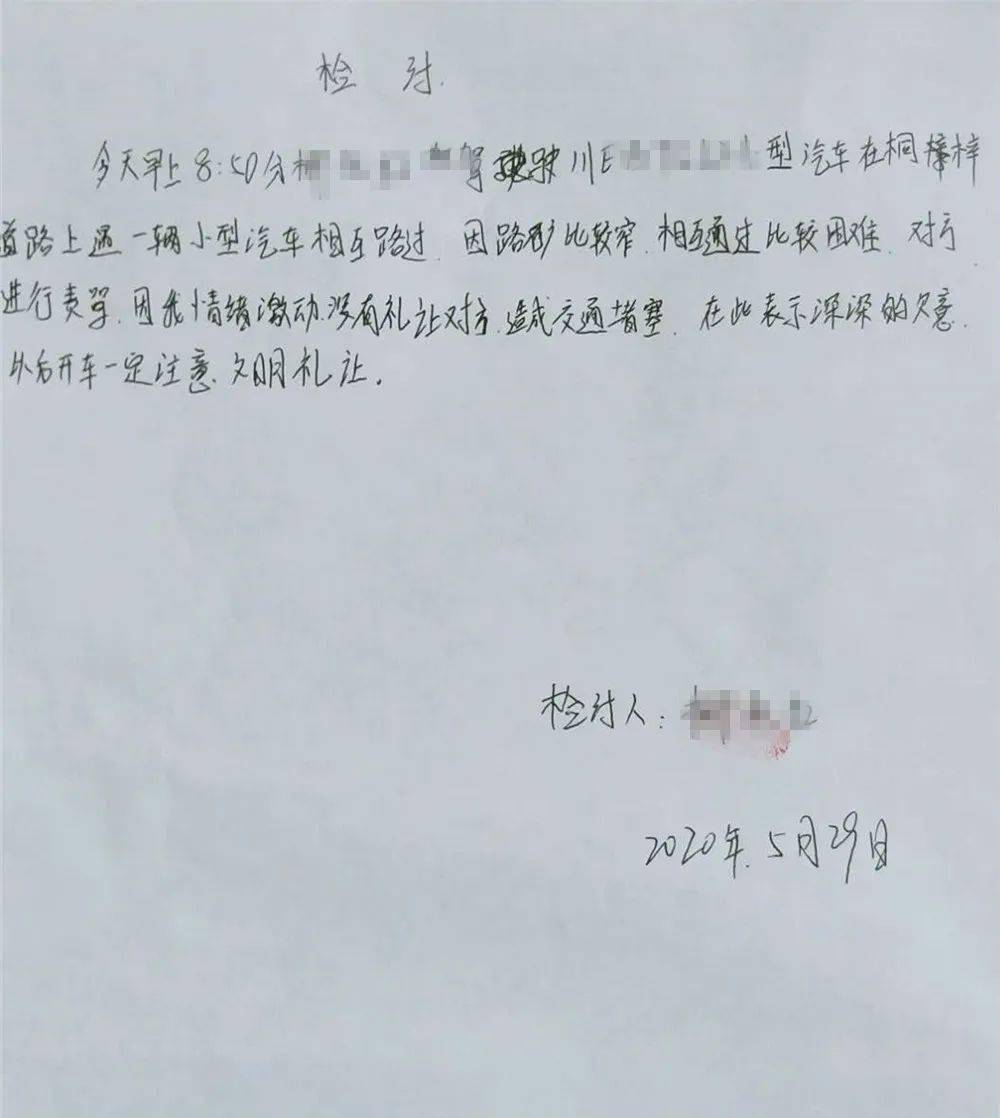 检 讨.
今天早上8:50分 驾驶川E 型汽车在桐梓
道路上遇一辆小型汽车相互路过 因路 比较窄.相互通过比较困难 对方
进行责骂.因我情绪激动.没有礼让对方.造成交通堵塞.在此表示深深的欠意.
以后开车一定注意.文明礼让.
检讨人:
2020年.5月29日